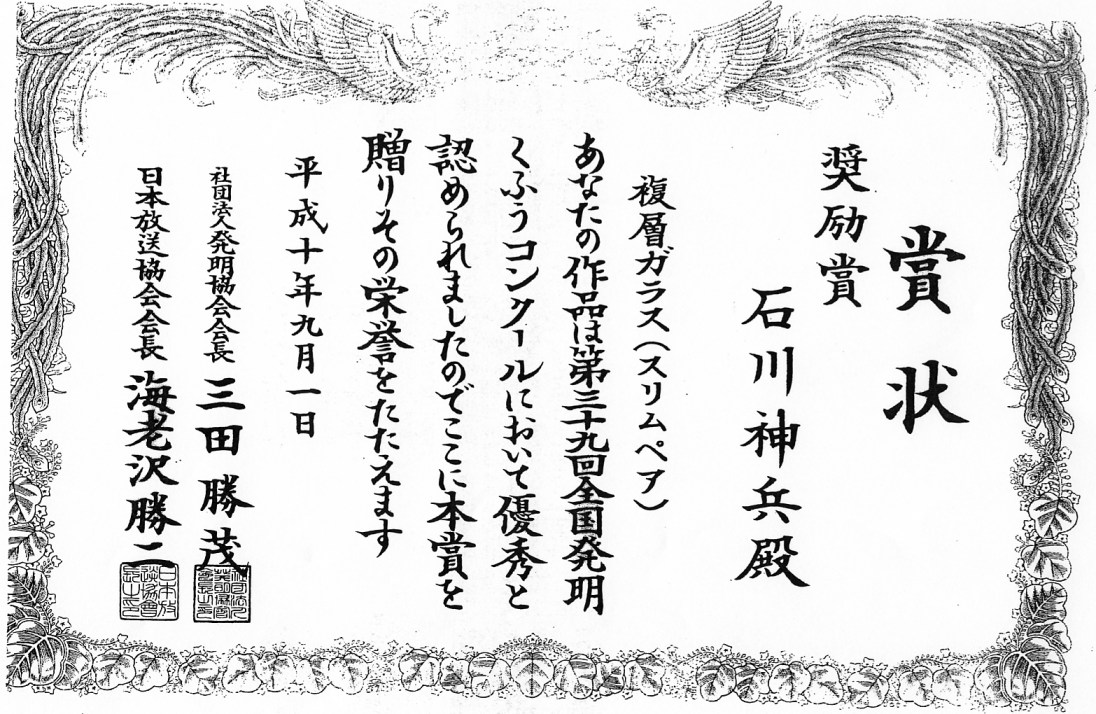 賞状
奨励賞
石川神兵殿
複層ガラス(スリムペア)
あなたの作品は第三十九回全国発明
くふうコンクールにおいて優秀と
認められましたのでここに本賞を
贈りその栄誉をたたえます
平成十年九月一日
社団法人発明協会会長 三田勝茂
日本放送協会会長 海老沢勝二
日本放送協會長之印